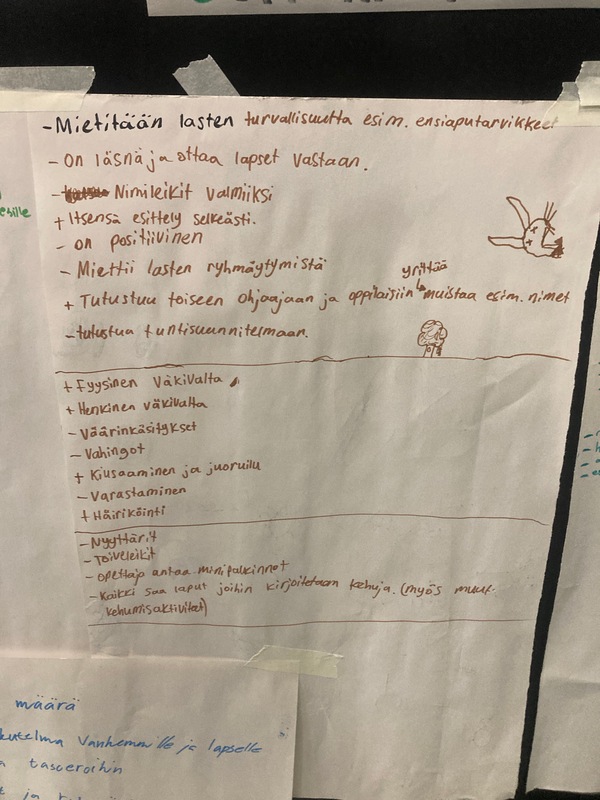 - Mietitään lasten turvallisuutta esim. ensiaputarvikkeet
- On läsnä ja ottaa lapset vastaan.
- Nimileikit valmiiksi
+ Itsensä esittely selkeästi.
- on positiivinen
- Miettii lasten ryhmäytymistä
yrittää
+ Tutustuu toiseen ohjaajaan ja oppilaisiin muistaa esim. nimet
- tutustua tuntisuunnitelmaan.
+ Fyysinen väkivalta
+ Henkinen väkivalta
- Väärinkäsitykset
- Vahingot
+ Kiusaaminen ja juoruilu
- Varastaminen
+ Häiriköinti
- Nyyttärit
- Toiveleikit
- opettaja antaa minipalkinnot
- Kaikki saa laput joihin kirjoitetaan kehuja. (myös muut
kehumisaktivitet)
määrä
Vanhemmille ja lapselle
tasoeroihin
ja